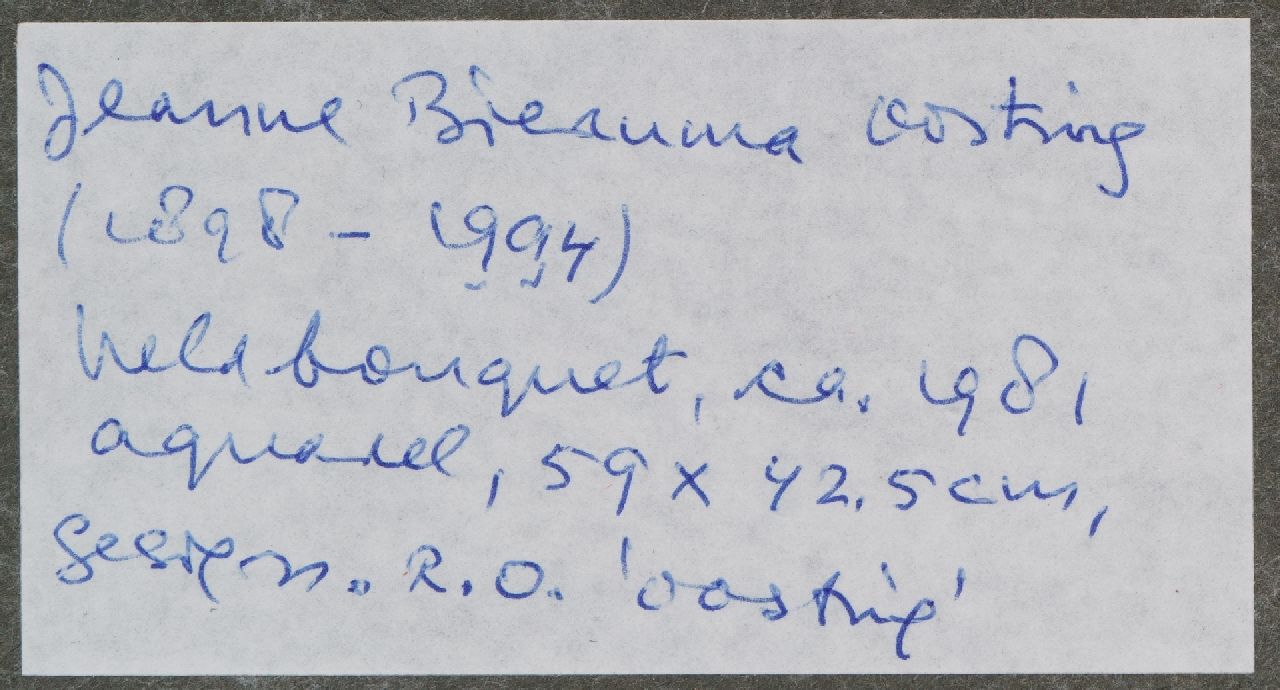 Jeanne Bieruma Oosting
(1898 - 1994)
Veldbouquet, ca. 1981
aquarel, 59 x 42.5 cm,
Gesign. R.O. 'oosting'